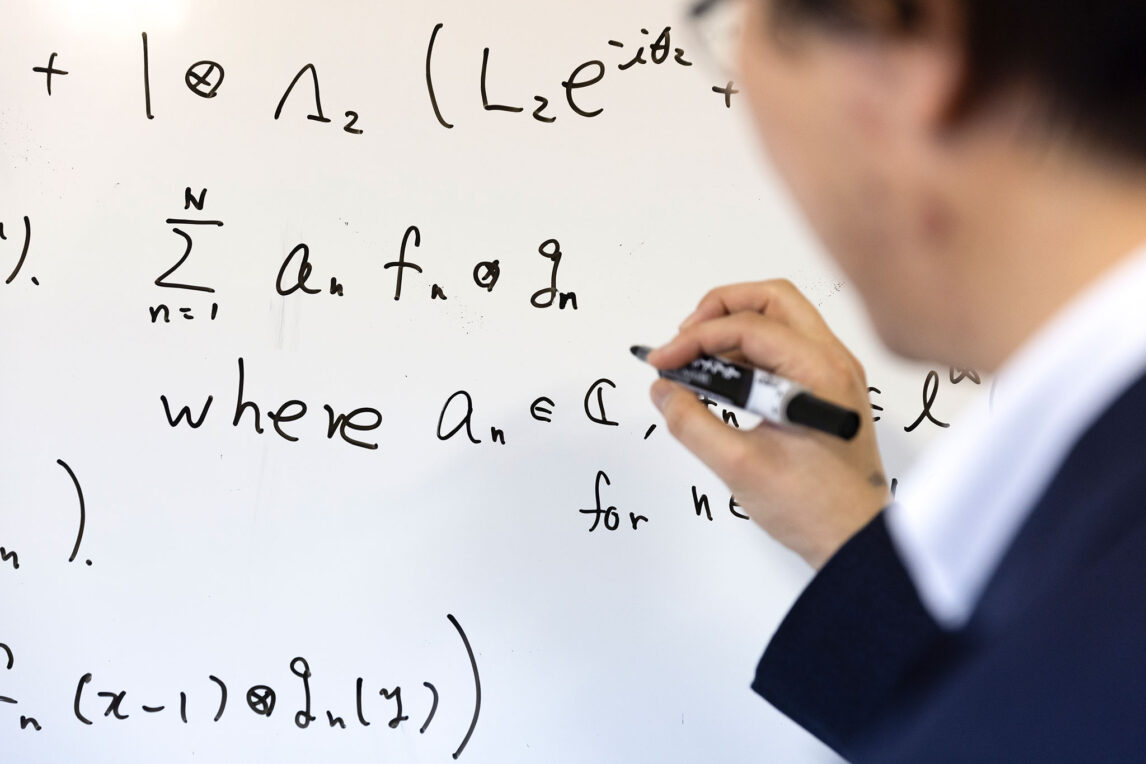 + 1 ⊗ Λ₂ ( L₂ e^{-iθ₂} +
). ∑_{n=1}^{N} aₙ fₙ ⊗ gₙ
where aₙ ∈ ℂ, ∈ ℓ^∞
for n ∈
ₙ ).
ₙ (x-1) ⊗ gₙ(y) )